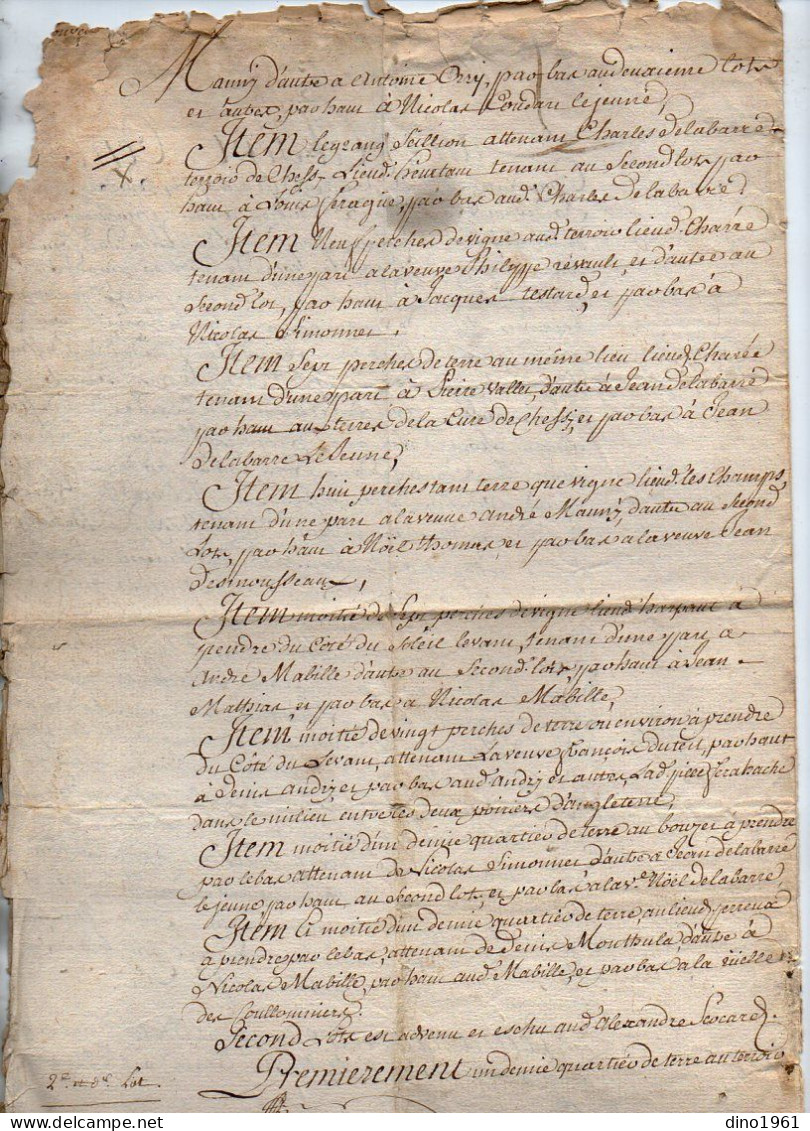 Mauny d'autre a Antoine Orry, par bas au deuxieme lots
et autres, par haut à Nicolas Condan le jeune,
Item le grang Seillion attenant Charles Delabarre
terroir de Chessy Lieud. tenant au Second lots, par
haut à Louis par bas aud. Charles Delabarre,
Item Neuf perches de vigne aud. terroir lieud. Charée
tenant d'une part a la veuve Philippe revault, et d'autre au
Second lot, par haut à Jacques testard, et par bas à
Nicolas Simonnet.
Item Sept perches de terre au même lieu lieud. Charée
tenant d'une part à Vallet, d'autre à Jean Delabarre
par haut aux terres de la Cure de Chessy, et par bas à Jean
Delabarre Le Jeune,
Item huit perches tant terre que vigne lieud. les Champs
tenant d'une part a la veuve André Mauny, d'autre au Second
Lots, par haut à Nöel thomas, et par bas a la veuve Jean
Desmousseaux,
Item moitié de Sept perches de vigne lieud. à
prendre du Côté du Soleil levant, tenant d'une part a
André Mabille d'autre au Second lots, par haut à Jean
Mathias et par bas a Nicolas Mabille,
Item moitié de vingt perches de terre ou environ à prendre
du Côté du Levant, attenant La veuve François par haut
à Denis Andry et par bas aud. Andry et autres, Lad. piece
dans le milieu entre les deux poiriers d'angleterre,
Item moitié d'un demie quartier de terre au bouzet à prendre
par le bas attenant de Nicolas Simonnet d'autre à Jean Delabarre
le jeune par haut au Second lots, et par bas a la ve. Nöel delabarre,
Item La moitié d'un demie quartier de terre au lieud.
à prendre par le bas, attenant de Denis Monthula d'autre à
Nicolas Mabille, par haut aud. Mabille, et par bas a la ruelle
des Coullommiers.
Second Lots est advenu et eschu aud. Alexandre
Premierement un demie quartier de terre au terroir
2e. et 3e. Lot
dino1961